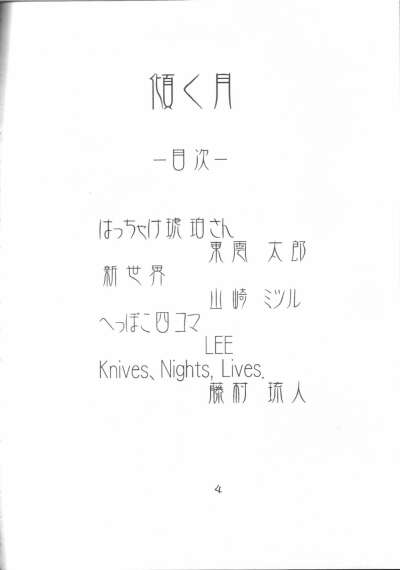 傾く月
―目次―
はっちゃけ琥珀さん
東鳳 太郎
新世界
山崎 ミツル
へっぽこ四コマ
LEE
Knives、Nights, Lives.
藤村 琉人
4